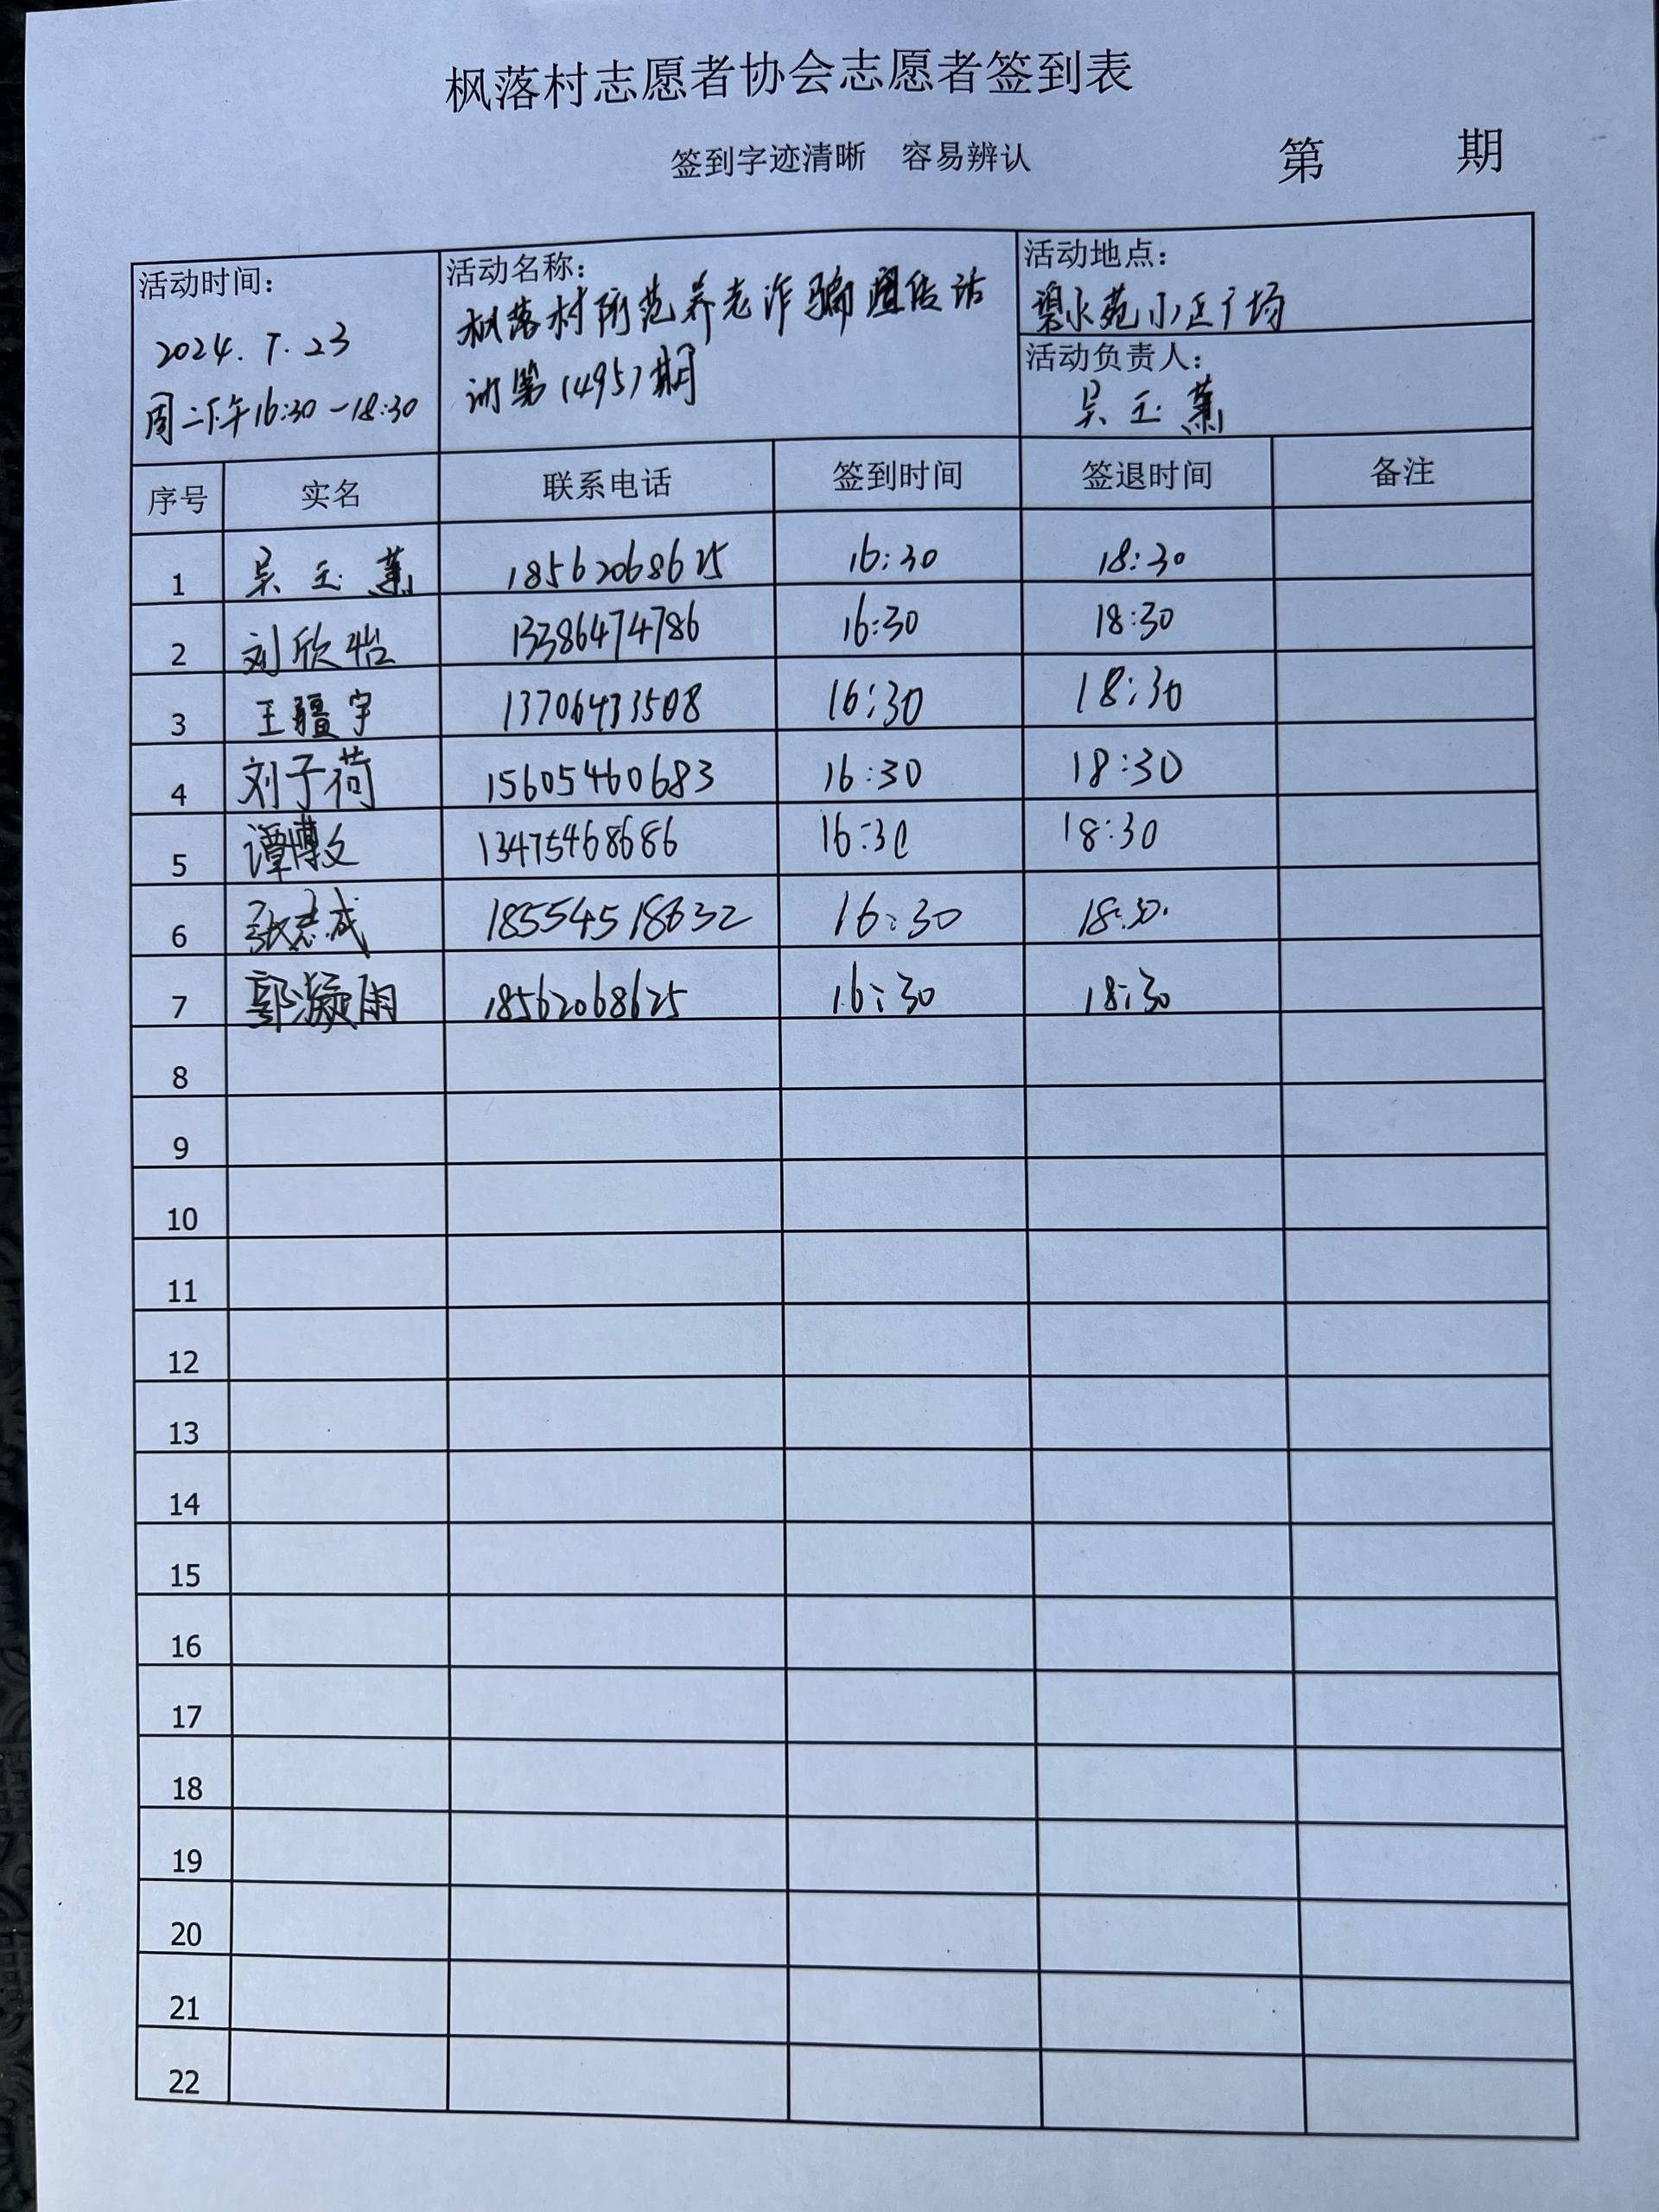 枫落村志愿者协会志愿者签到表
签到字迹清晰 容易辨认 第 期
活动时间：
2024.7.23
周二下午16:30-18:30
活动名称：
枫落村防范养老诈骗宣传活
动第(495)期
活动地点：
碧水苑小区广场
活动负责人：
吴玉薰
序号 实名 联系电话 签到时间 签退时间 备注
1 吴玉薰 18562068625 16:30 18:30
2 刘欣怡 13386474786 16:30 18:30
3 王疆宇 13706433508 16:30 18:30
4 刘子荷 15605460683 16:30 18:30
5 谭博文 13475468686 16:30 18:30
6 张志成 18554518632 16:30 18:30.
7 郭凝雨 18562068625 16:30 18:30
8
9
10
11
12
13
14
15
16
17
18
19
20
21
22